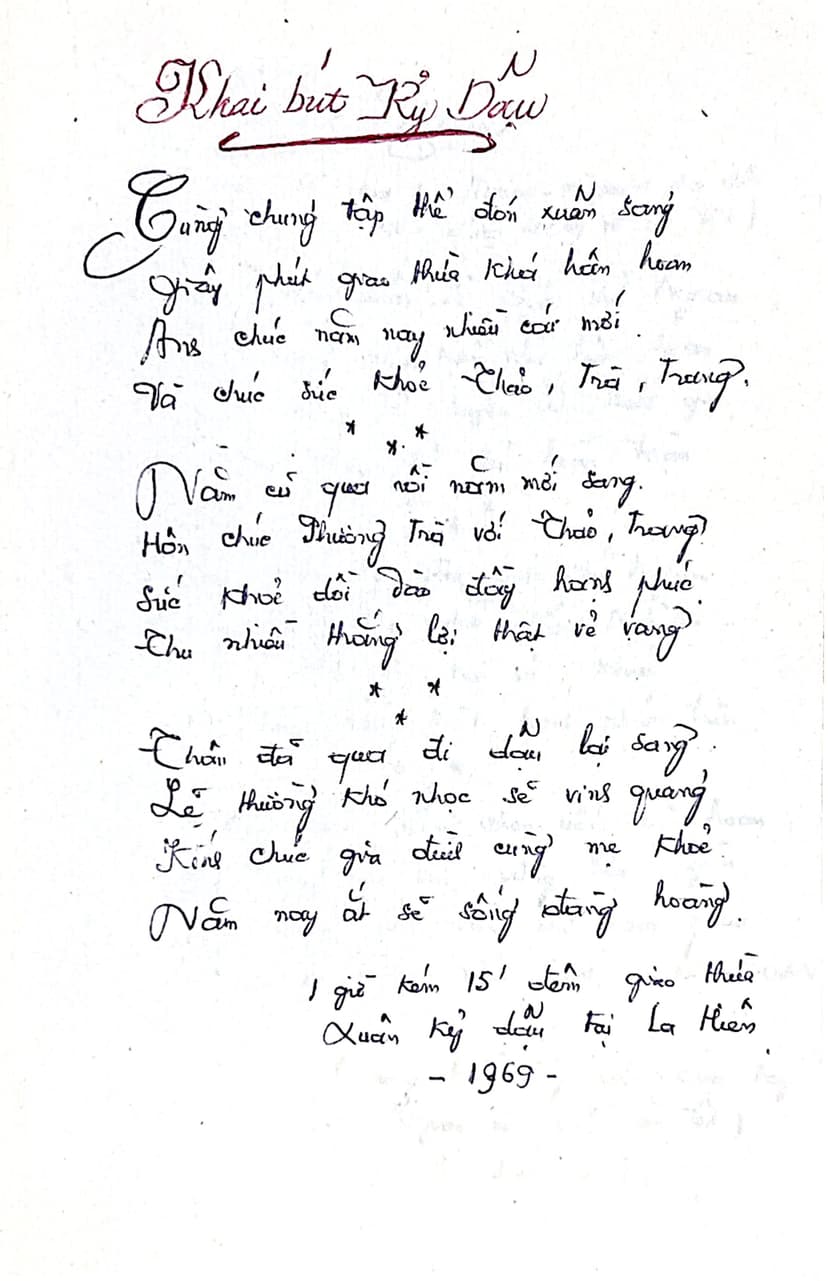 Khai bút Kỷ Dậu
Cùng chung tập thể đón xuân sang
Giây phút giao thừa khá hân hoan
Anh chúc năm nay nhiều cái mới.
Và chúc sức khoẻ Thảo, Trà, Trang.
* * *
Năm cũ qua rồi năm mới sang.
Hôn chúc Phương Trà với Thảo, Trang
Sức khoẻ dồi dào đầy hạnh phúc.
Thu nhiều thắng lợi thật vẻ vang
* * *
Thân đã qua đi dậu lại sang.
Lẽ thường khó nhọc sẽ vinh quang
Kính chúc gia đình cùng mẹ khoẻ.
Năm nay ắt sẽ sống đàng hoàng.
1 giờ kém 15' đêm giao thừa
Xuân kỷ dậu tại La Hiên.
- 1969 -